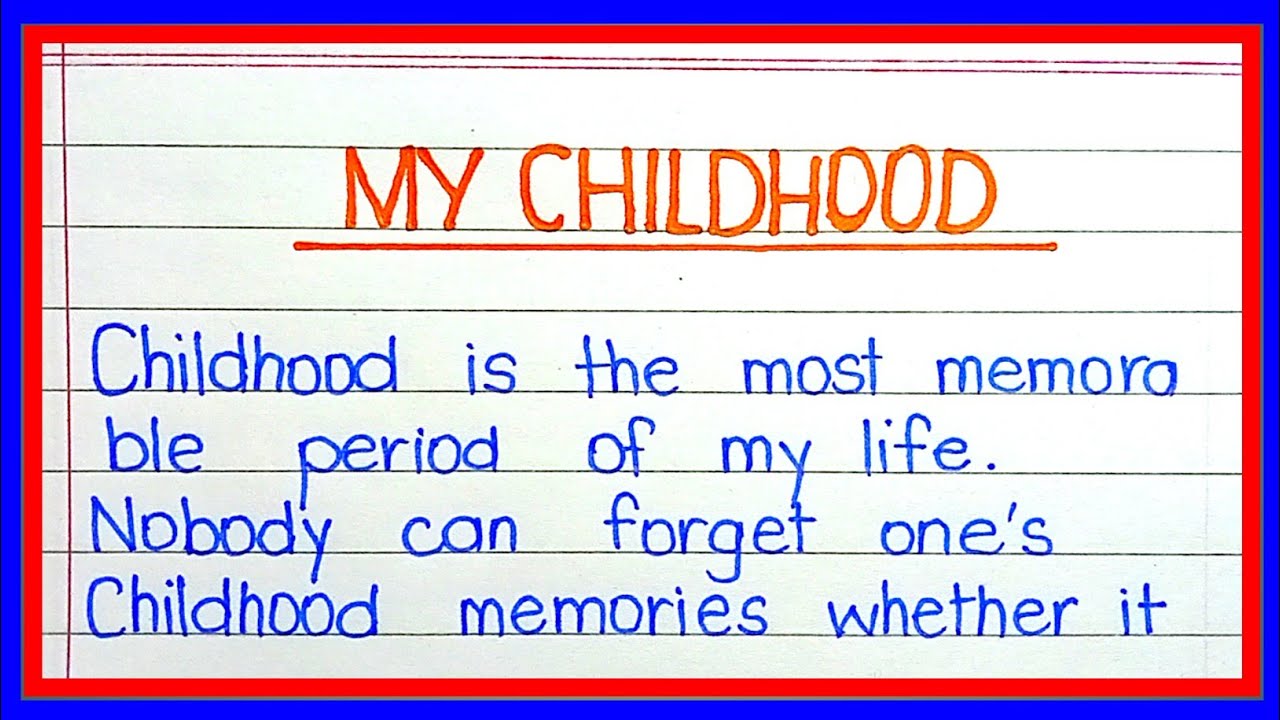 MY CHILDHOOD
Childhood is the most memora
ble period of my life.
Nobody can forget one's
Childhood memories whether it